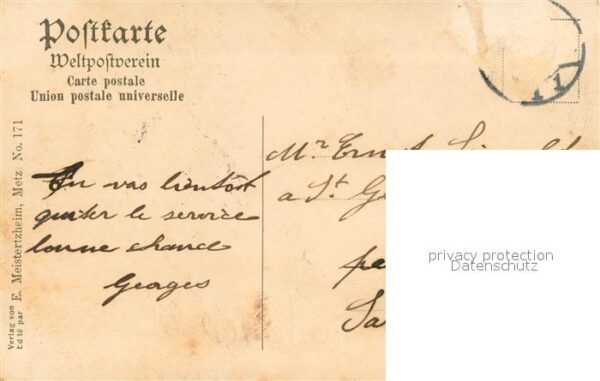 Postkarte
Weltpostverein
Carte postale
Union postale universelle
11
Verlag von E. Meistertzheim, Metz No. 171
Edité par
Tu vas bientôst
quitter le service
bonne chance
Georges
Mr Ernest
a St
privacy protection
Datenschutz